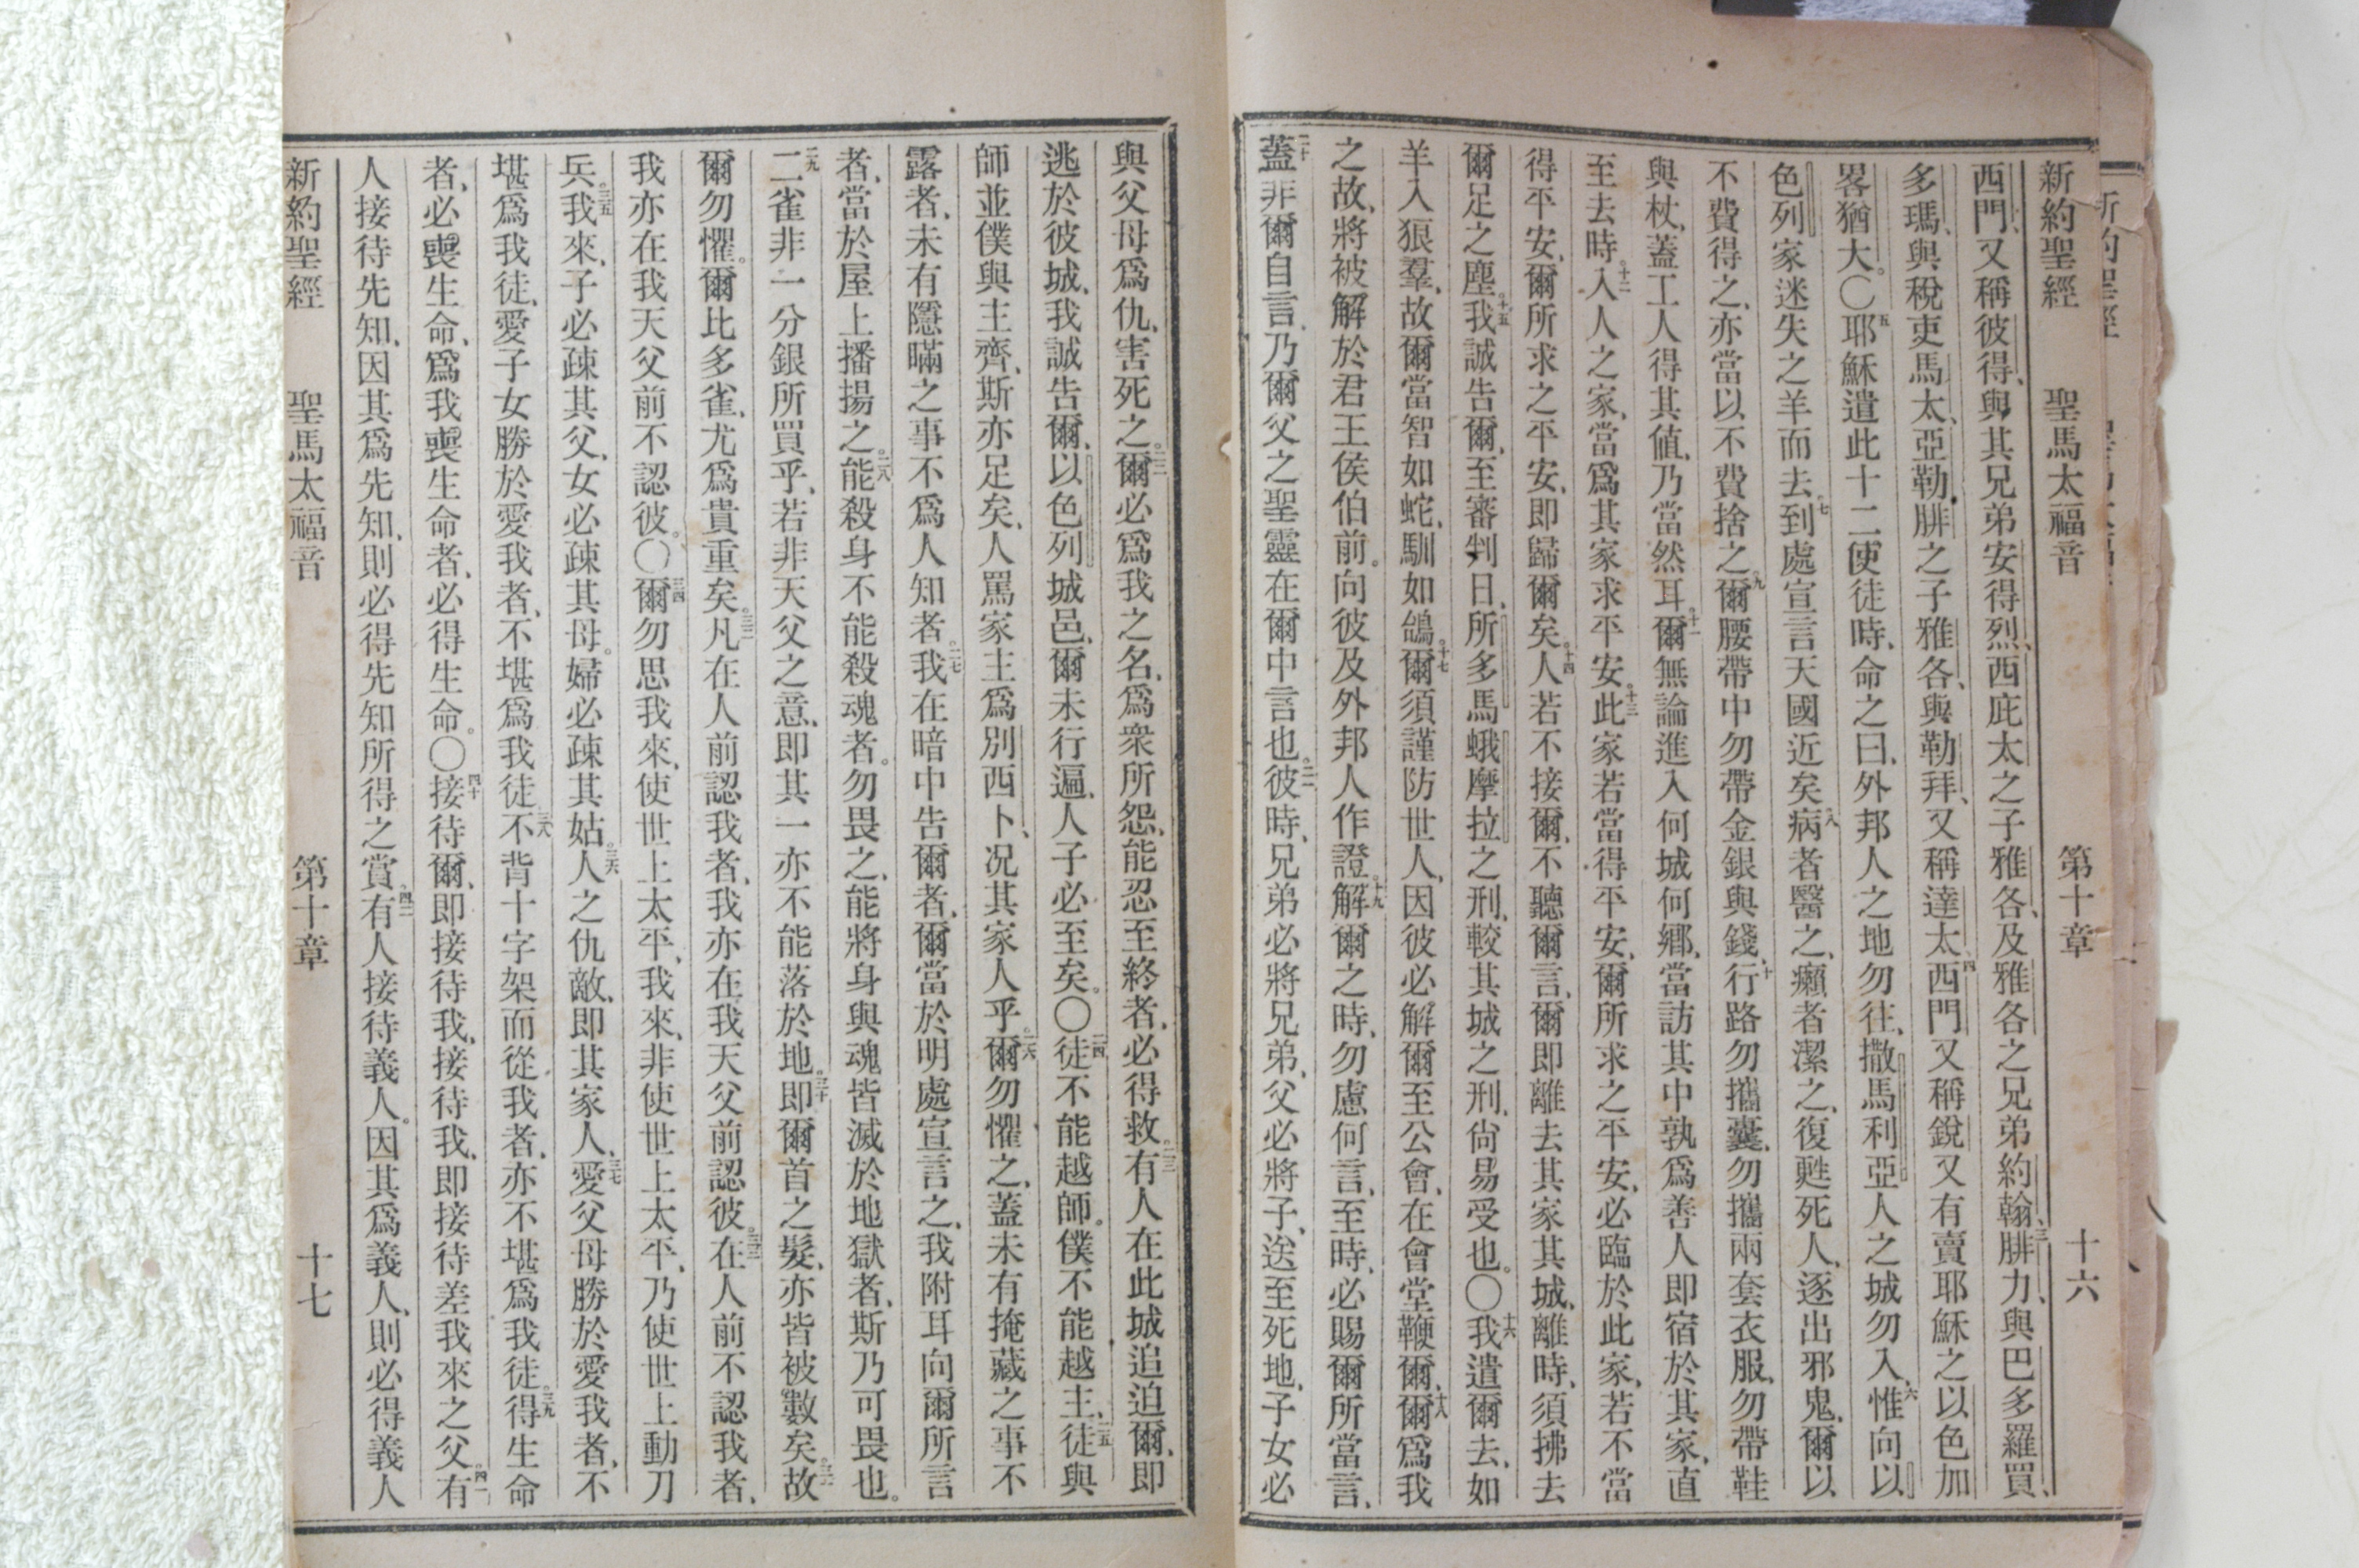 新約聖經 聖馬太福音 第十章 十六
西門、又稱彼得、與其兄弟安得烈、西庇太之子雅各、及雅各之兄弟約翰、三腓力、與巴多羅買、
多瑪、與稅吏馬太、亞勒腓之子雅各、與勒拜、又稱達太、四西門又稱銳又有賣耶穌之以色加
畧猶大。〇五耶穌遣此十二使徒時、命之曰、外邦人之地勿往、撒馬利亞人之城勿入、六惟向以
色列家迷失之羊而去、七到處宣言天國近矣、八病者醫之、癩者潔之、復甦死人、逐出邪鬼、爾以
不費得之、亦當以不費捨之。九爾腰帶中勿帶金銀與錢、十行路勿攜囊、勿攜兩套衣服、勿帶鞋
與杖、蓋工人得其值、乃當然耳。十一爾無論進入何城何鄉、當訪其中孰爲善人即宿於其家、直
至去時。十二入人之家、當爲其家求平安。十三此家若當得平安、爾所求之平安、必臨於此家、若不當
得平安、爾所求之平安、即歸爾矣。十四人若不接爾、不聽爾言、爾即離去其家其城、離時、須拂去
爾足之塵。十五我誠告爾、至審判日、所多馬蛾摩拉之刑、較其城之刑、尙易受也。〇十六我遣爾去、如
羊入狼羣、故爾當智如蛇、馴如鴿。十七爾須謹防世人、因彼必解爾至公會、在會堂鞭爾、十八爾爲我
之故、將被解於君王侯伯前。向彼及外邦人作證。十九解爾之時、勿慮何言、至時、必賜爾所當言、
二十蓋非爾自言、乃爾父之聖靈在爾中言也。二一彼時、兄弟必將兄弟、父必將子、送至死地、子女必
與父母爲仇、害死之。二二爾必爲我之名、爲衆所怨、能忍至終者、必得救。二三有人在此城追迫爾、即
逃於彼城、我誠告爾、以色列城邑、爾未行遍、人子必至矣。〇二四徒不能越師。僕不能越主、二五徒與
師並僕與主齊、斯亦足矣、人罵家主爲別西卜、况其家人乎。二六爾勿懼之、蓋未有掩藏之事不
露者、未有隱瞞之事不爲人知者。二七我在暗中告爾者、爾當於明處宣言之、我附耳向爾所言
者、當於屋上播揚之。二八能殺身不能殺魂者。勿畏之、能將身與魂皆滅於地獄者、斯乃可畏也。
二九二雀非一分銀所買乎、若非天父之意、即其一亦不能落於地。三十即爾首之髮、亦皆被數矣。三一故
爾勿懼。爾比多雀、尤爲貴重矣。三二凡在人前認我者、我亦在我天父前認彼。三三在人前不認我者、
我亦在我天父前不認彼。〇三四爾勿思我來、使世上太平、我來、非使世上太平、乃使世上動刀
兵。三五我來、子必疎其父、女必疎其母。婦必疎其姑。三六人之仇敵、即其家人、三七愛父母勝於愛我者、不
堪爲我徒、愛子女勝於愛我者、不堪爲我徒、三八不背十字架而從我者、亦不堪爲我徒。三九得生命
者、必喪生命、爲我喪生命者、必得生命。〇四十接待爾、即接待我、接待我、即接待差我來之父。四一有
人接待先知、因其爲先知、則必得先知所得之賞、四二有人接待義人。因其爲義人、則必得義人
新約聖經 聖馬太福音 第十章 十七